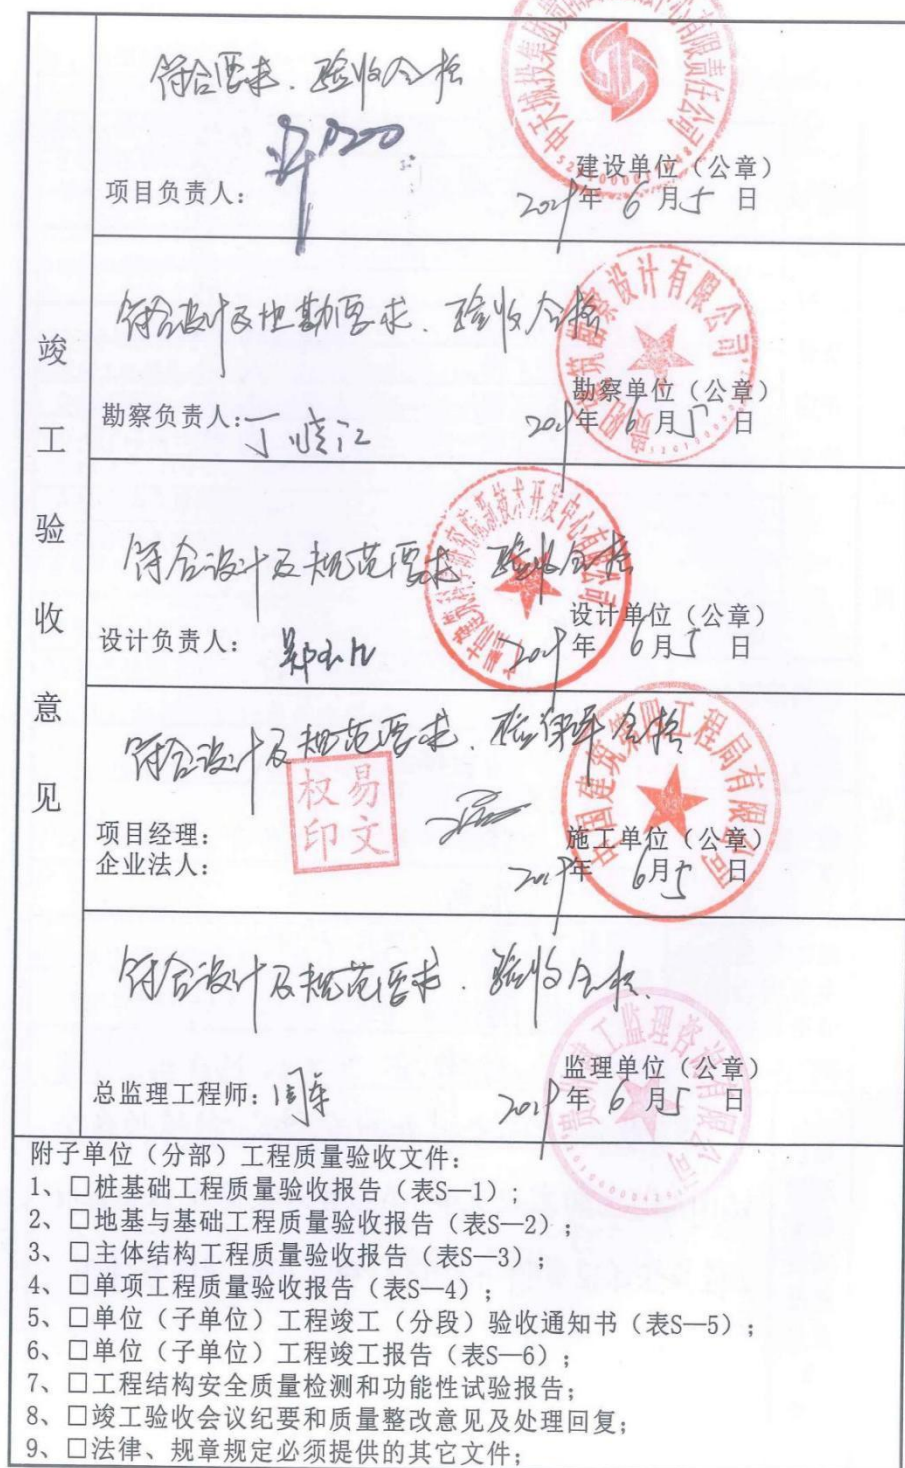 竣工验收意见
符合要求、验收合格
项目负责人：
建设单位（公章）
年 6 月 5 日
符合设计及地勘要求、验收合格
勘察设计有限公司
勘察负责人：丁晓江
勘察单位（公章）
年 6 月 5 日
新技术开发中心有限公司
符合设计及规范要求、验收合格
设计负责人：
设计单位（公章）
年 6 月 5 日
符合设计及规范要求、合格
易文权印
中国建筑第四工程局有限公司
项目经理：
企业法人：
施工单位（公章）
年 6 月 5 日
符合设计及规范要求、验收合格
工监理咨询有限公司
监理单位（公章）
总监理工程师：周军
年 6 月 5 日
附子单位（分部）工程质量验收文件：
1、□桩基础工程质量验收报告（表S—1）；
2、□地基与基础工程质量验收报告（表S—2）；
3、□主体结构工程质量验收报告（表S—3）；
4、□单项工程质量验收报告（表S—4）；
5、□单位（子单位）工程竣工（分段）验收通知书（表S—5）；
6、□单位（子单位）工程竣工报告（表S—6）；
7、□工程结构安全质量检测和功能性试验报告；
8、□竣工验收会议纪要和质量整改意见及处理回复；
9、□法律、规章规定必须提供的其它文件；